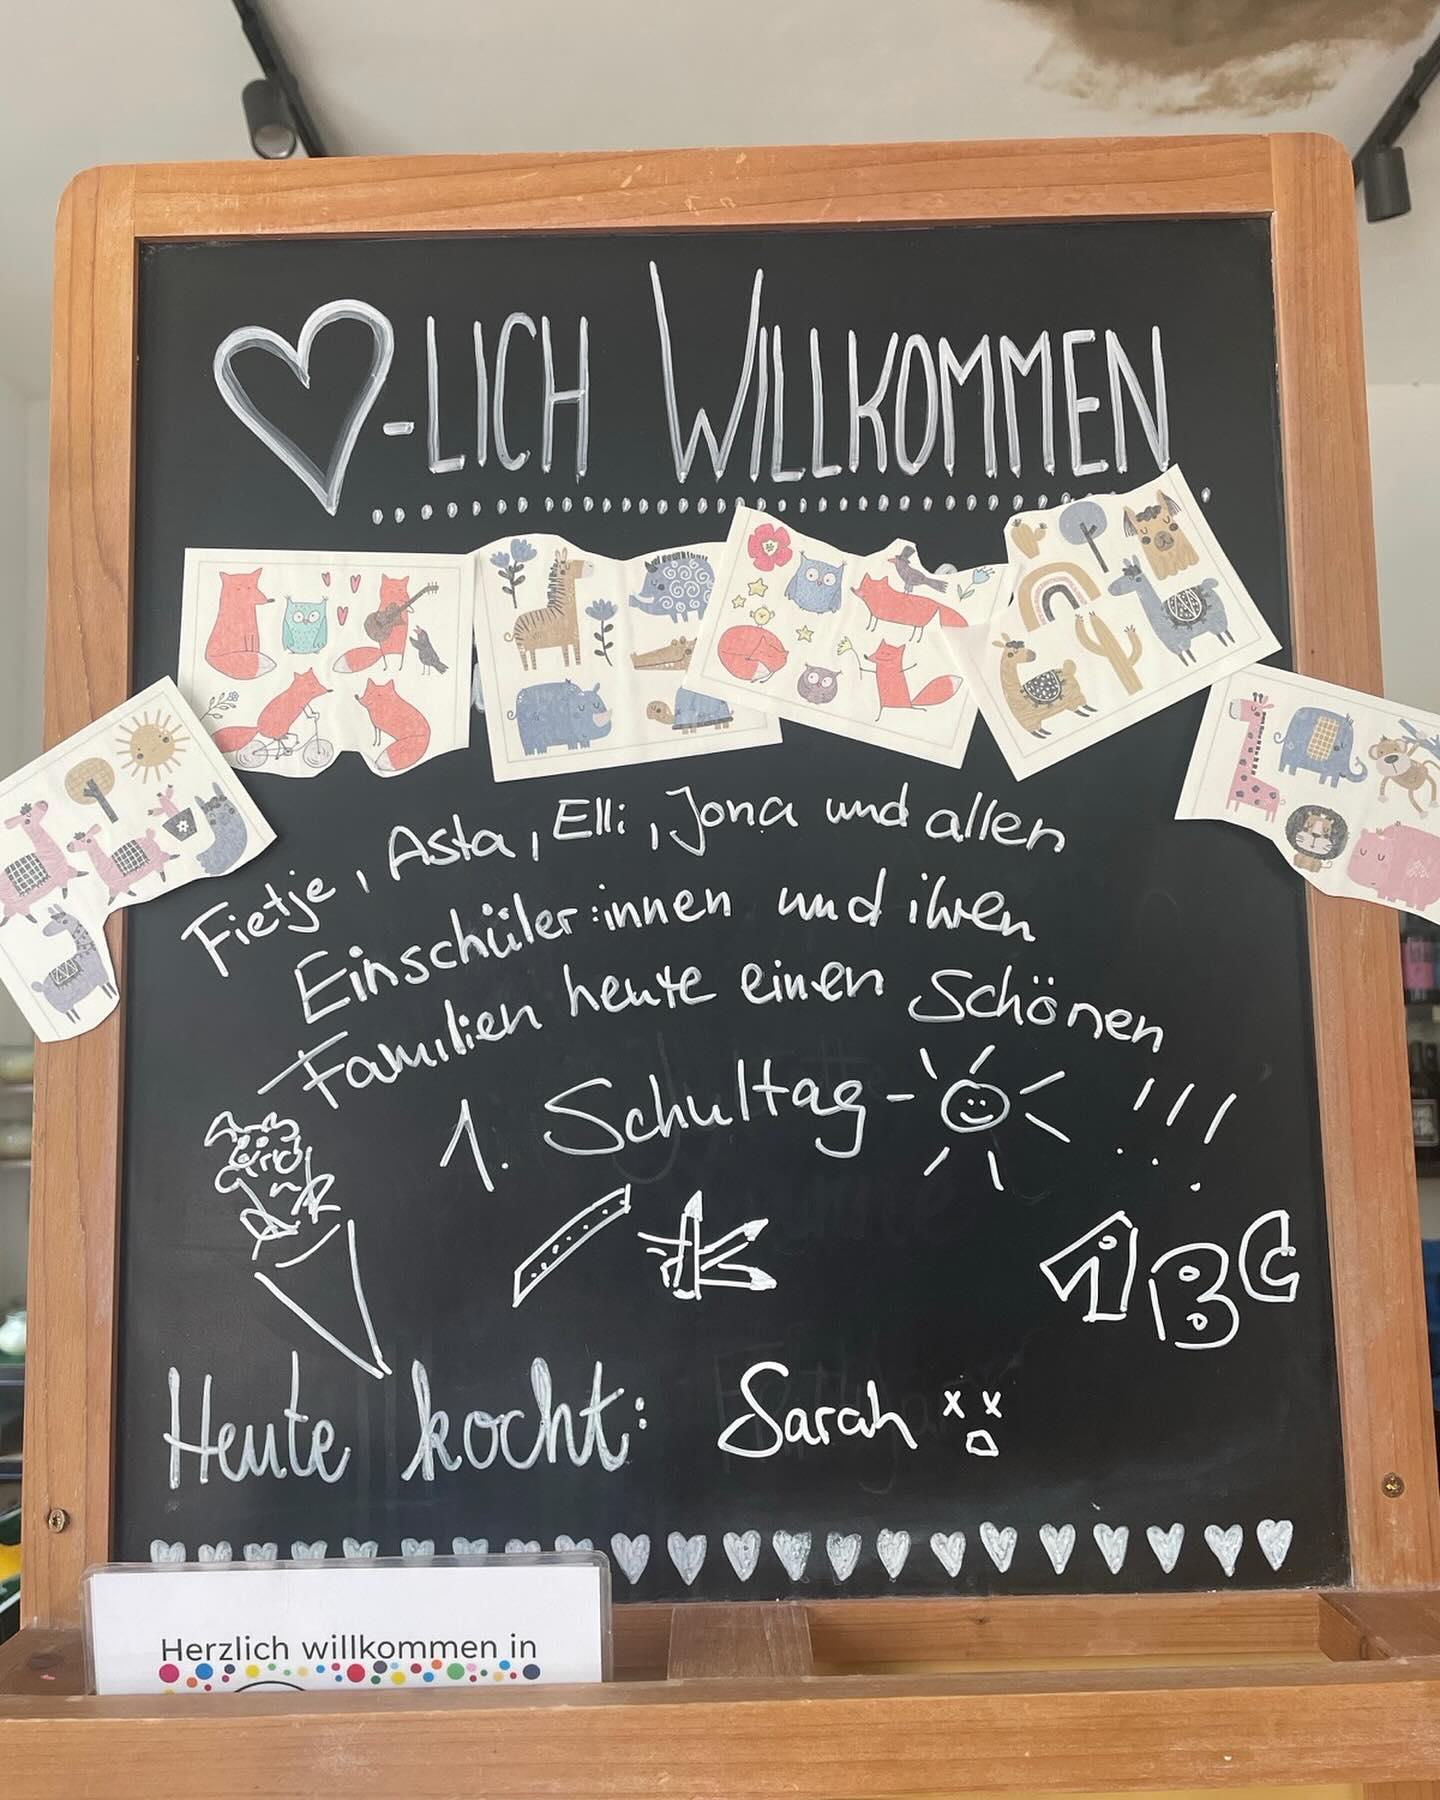 ♡-LICH WILLKOMMEN
Fietje, Asta, Elli, Jona und allen
Einschüler:innen und ihren
Familien heute einen Schönen
1. Schultag - !!!
ABC
Heute kocht: Sarah
Herzlich willkommen in